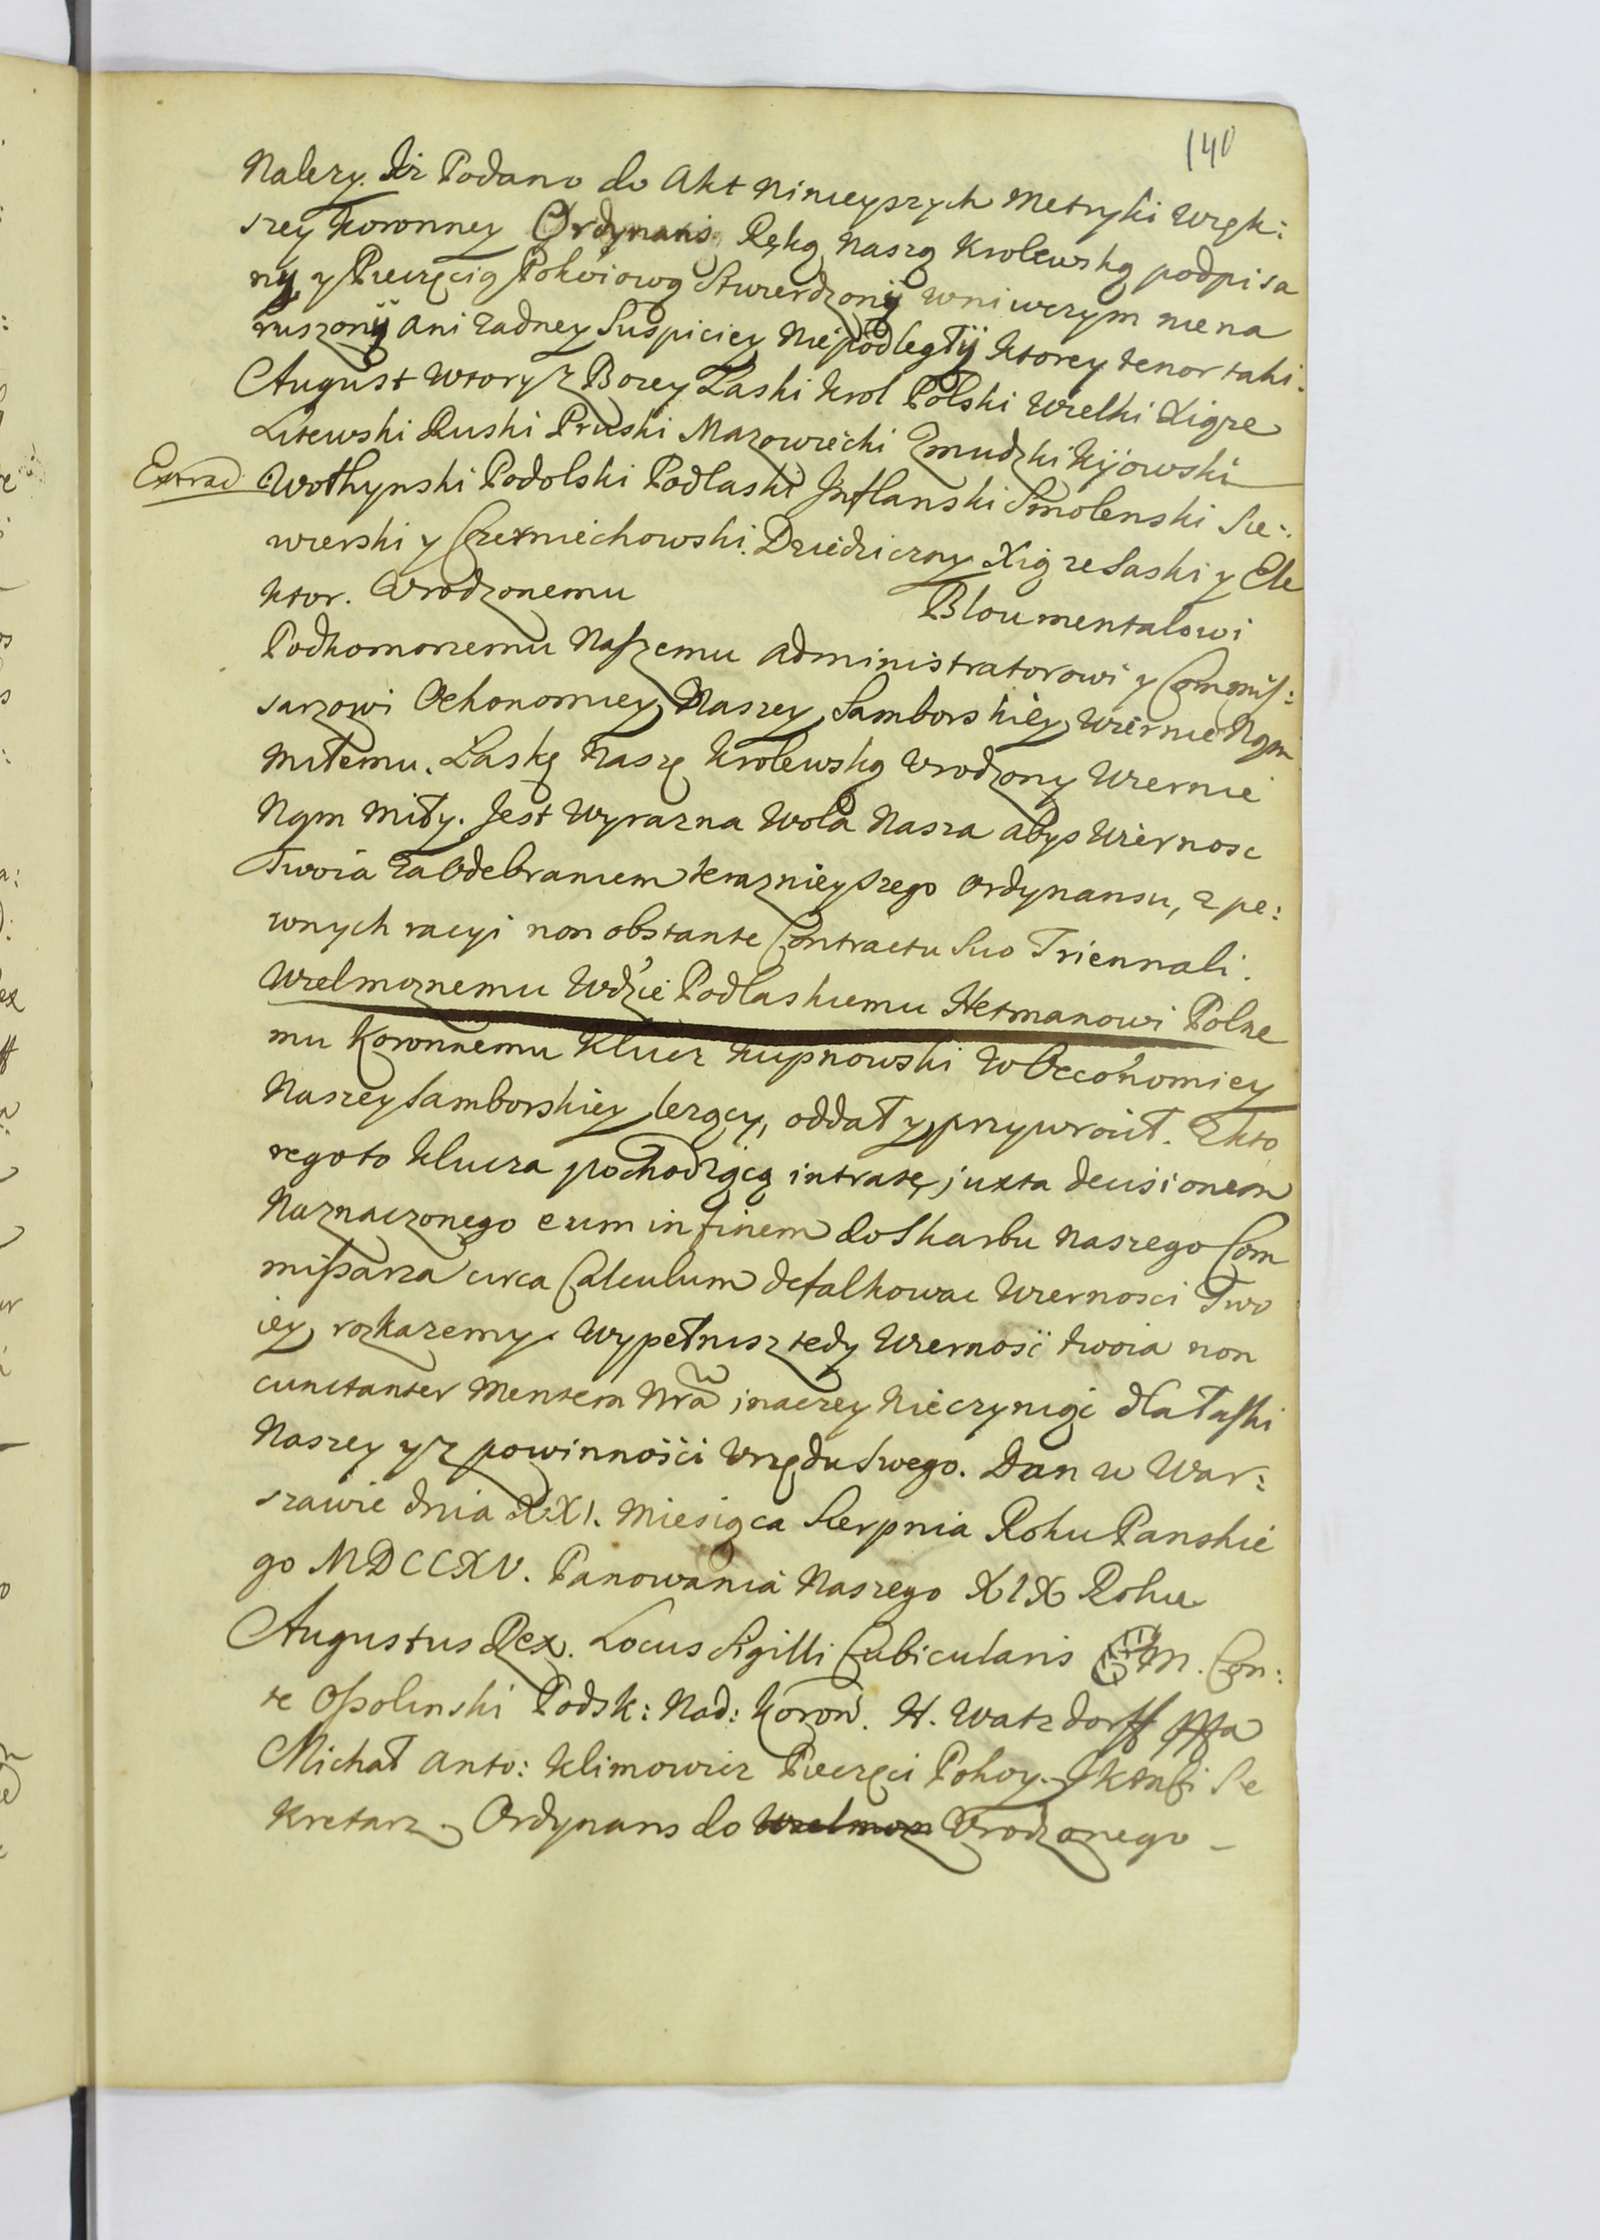 140
Nalezy. Iż Podano do Akt Ninieyszych Metryki Więk:
szey Koronney Ordynans Ręką Naszą Krolewską podpisa
ny y Pieczęcią Pokoiową Stwierdzony wni wczym nie na
ruszony ani zadney Suspiciey Niepodległy ktorey tenor taki.
August Wtory z Bozey Łaski Krol Polski Wielki Xiąze
Litewski Ruski Pruski Mazowiecki Zmudzki Kijowski
Extrad
Wołhynski Podolski Podlaski Inflanski Smolenski Sie:
wierski y Czerniechowski. Dziedziczny Xiąze Saski y Ele
ktor. Urodzonemu Bloumentalowi
Podkomorzemu Naszemu Administratorowi y Commis:
sarzowi Oekonomiey Naszey Samborskiey Wiernie Nąm
Miłemu. Łaskę Naszę Krolewską Urodzony Wiernie
Nąm Miły. Jest Wyrazna Wola Nasza abys Wiernosc
Twoia za Odebraniem teraznieyszego Ordynansu, z pe:
wnych racyi non obstante Contractu Suo Triennali.
Wielmoznemu Wdzie Podlaskiemu Hetmanowi Polne
mu Koronnemu Klucz Kupnowski W Oeconomiey
Naszey Samborskiey lezący, oddał y przywrócił. Z kto
rego to Klucza pochodzącą intratę, juxta decisionem
Naznaczonego eum in finem do Skarbu Naszego Com
missarza circa Calculum defalkowac Wiernosci Two
iey rozkazemy. Wypełnisz tedy Wiernosć twoia non
cunctanter Mentem Nrã inaczey Nie czyniąc dla łaski
Naszey y z powinności Urzędu Swego. Dan w War:
szawie dnia XXI. Miesiąca Sierpnia Roku Panskie
go MDCCXV. Panowania Naszego XIX Roku
Augustus Rex. Locus Sigilli Cubicularis M. Con:
te Ossolinski Podsk: Nad: Koron. H. Watzdorff
Michał Anto: Klimowicz Pieczęci Pokoy. Se
kretarz Ordynans do Wielmoz Urodzonego